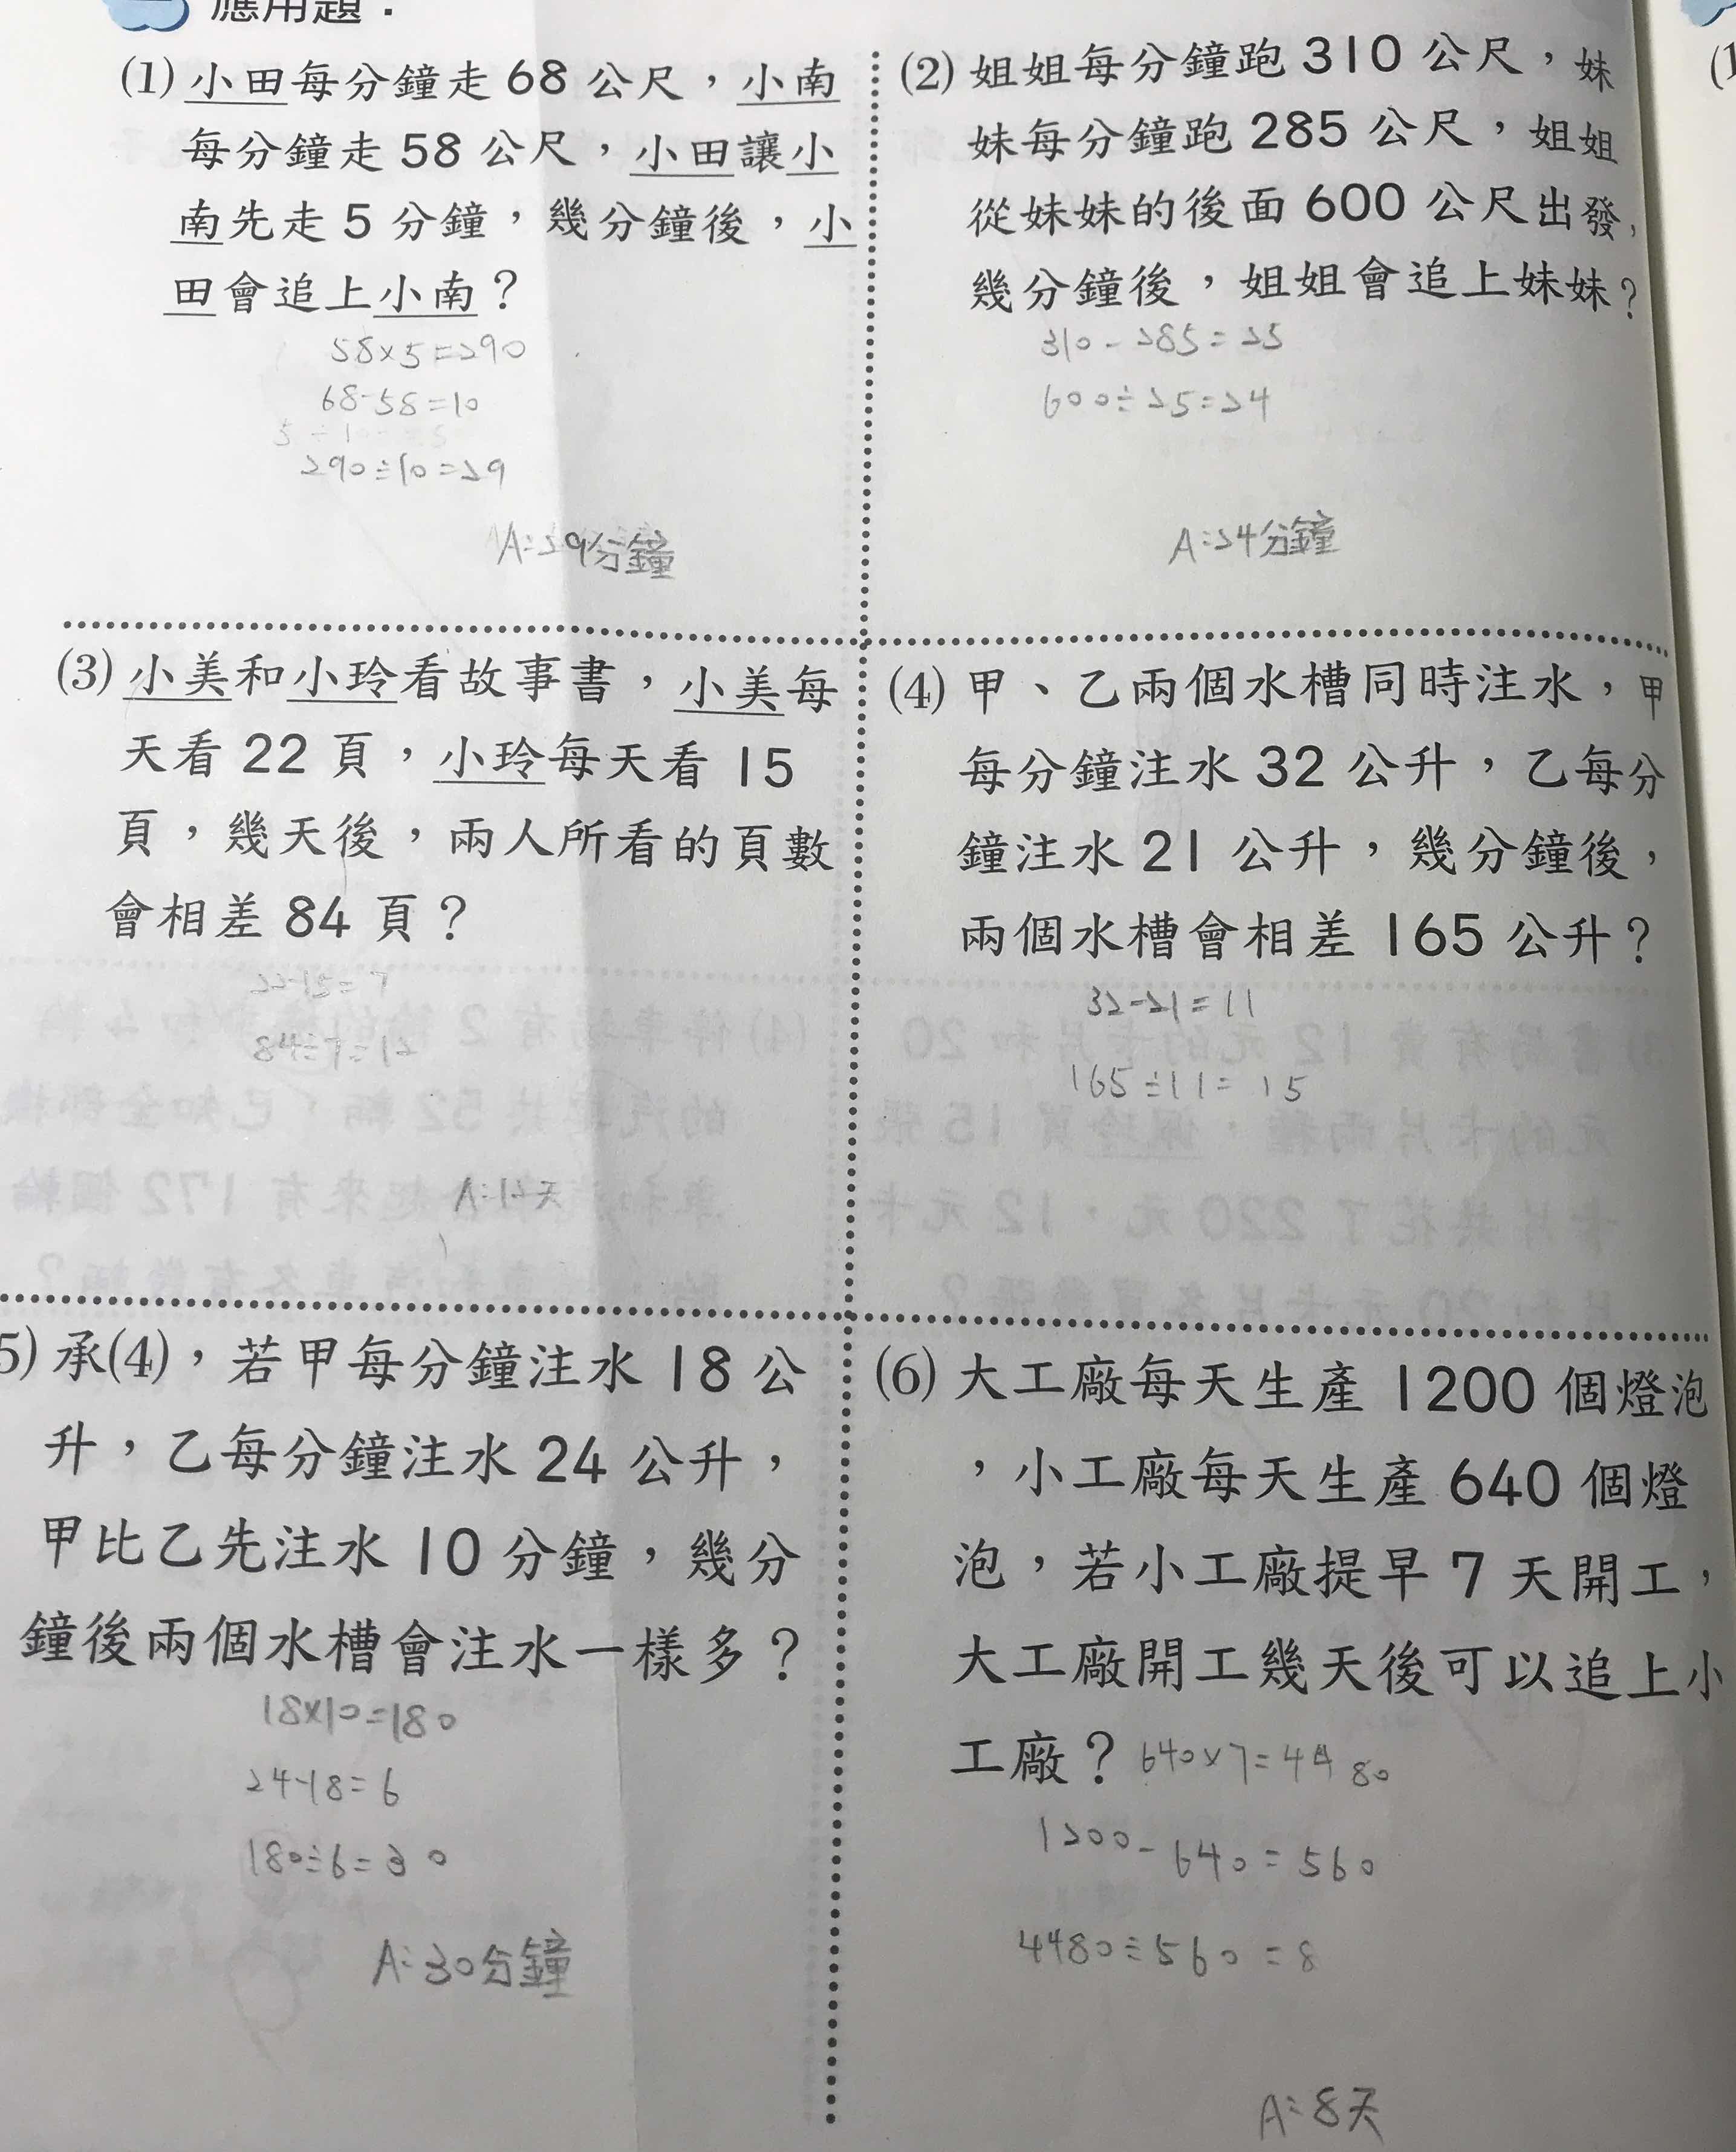 應用題：
(1) 小田每分鐘走 68 公尺，小南
每分鐘走 58 公尺，小田讓小
南先走 5 分鐘，幾分鐘後，小
田會追上小南？
58×5=290
68-58=10
290÷10=29
A:29分鐘
(2) 姐姐每分鐘跑 310 公尺，妹
妹每分鐘跑 285 公尺，姐姐
從妹妹的後面 600 公尺出發，
幾分鐘後，姐姐會追上妹妹？
310-285=25
600÷25=24
A:24分鐘
(3) 小美和小玲看故事書，小美每
天看 22 頁，小玲每天看 15
頁，幾天後，兩人所看的頁數
會相差 84 頁？
22-15=7
84÷7=12
A:12天
(4) 甲、乙兩個水槽同時注水，甲
每分鐘注水 32 公升，乙每分
鐘注水 21 公升，幾分鐘後，
兩個水槽會相差 165 公升？
32-21=11
165÷11=15
5) 承(4)，若甲每分鐘注水 18 公
升，乙每分鐘注水 24 公升，
甲比乙先注水 10 分鐘，幾分
鐘後兩個水槽會注水一樣多？
18×10=180
24-18=6
180÷6=30
A:30分鐘
(6) 大工廠每天生產 1200 個燈泡
，小工廠每天生產 640 個燈
泡，若小工廠提早 7 天開工，
大工廠開工幾天後可以追上小
工廠？640×7=4480
1200-640=560
4480÷560=8
A:8天